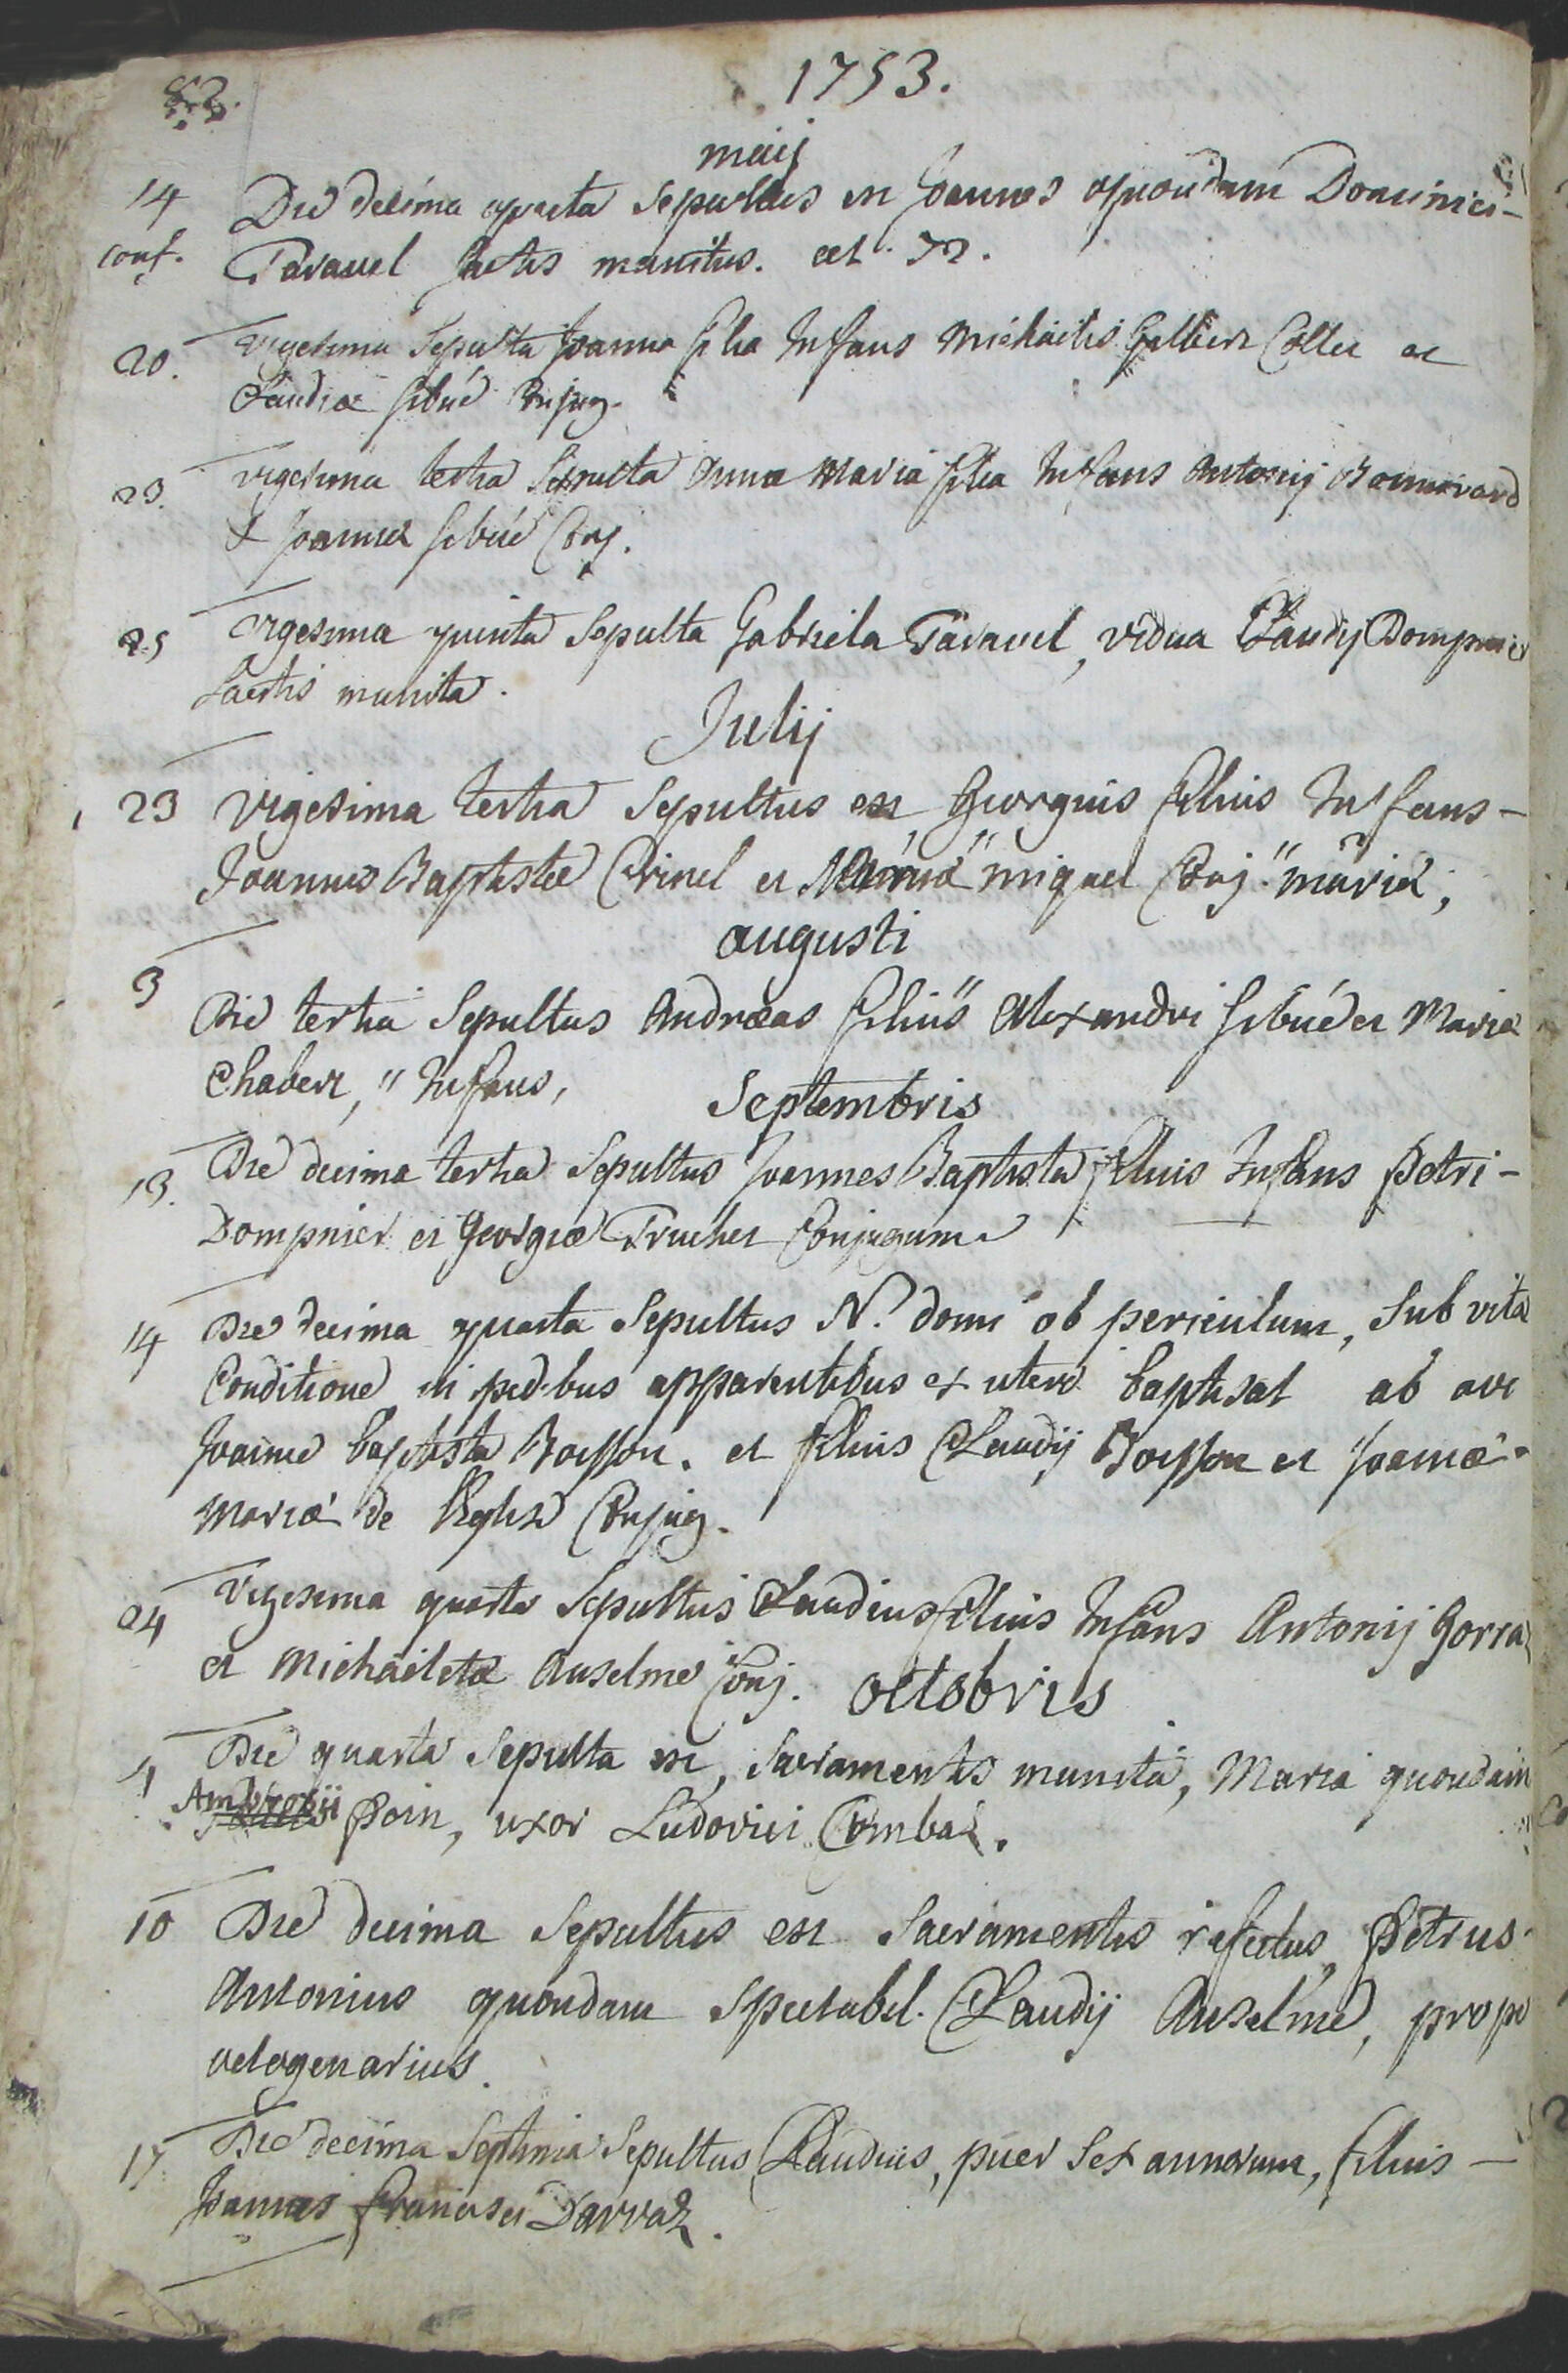 82.
1753.
maij
14 Die decima quarta sepultus est Joannes quondam Dominici -
conf. Taravel sactis munitus. aet. 72.
20. vigesima sepulta Joanna filia Infans Michaelis Gilbert Collet et
Claudiæ sibué Conjug.
23. vigesima tertia sepulta Anna Maria filia Infans Antonij Bonnivard
& Joannæ sibué Conj.
25 vigesima quinta sepulta Gabriela Taravel, vidua Claudij Dompnier
sactis munita.
Julij
23 vigesima tertia sepultus est Georgius filius Infans -
Joannis Baptistæ Crinel et " miquet Conj. " mariæ,
augusti
3 Die tertia sepultus Andræas filius " Alexandri sibué et Mariæ
Chabert, " Infans,
Septembris
13. Die decima tertia sepultus Joannes Baptista filius Infans Petri -
Dompnier et Georgiæ Truchet Conjugum
14 Die decima quarta sepultus N. domi ob periculum, sub vitæ
Conditione in pedibus apparentibus ex utero baptisat ab avi
Joanne baptista Boisson. et filius Claudij Boisson et Joannæ -
Mariæ de l'Eglise Conjug.
24 vigesima quarta sepultus Claudius filius Infans Antonij Gorraz
et Michaeletæ Anselme Conj. octobris
4 Die quarta sepulta est, sacramentis munita, Maria quondam
Ambrosii Poin, uxor Ludovici Combaz.
10 Die decima sepultus est sacramentis refectus, Petrus
Antonius quondam spectabil. Claudij Anselme, prope
octogenarius.
17 Die decima septima sepultus Claudius, puer sex annorum, filius -
Joannis francisci Darvaz.